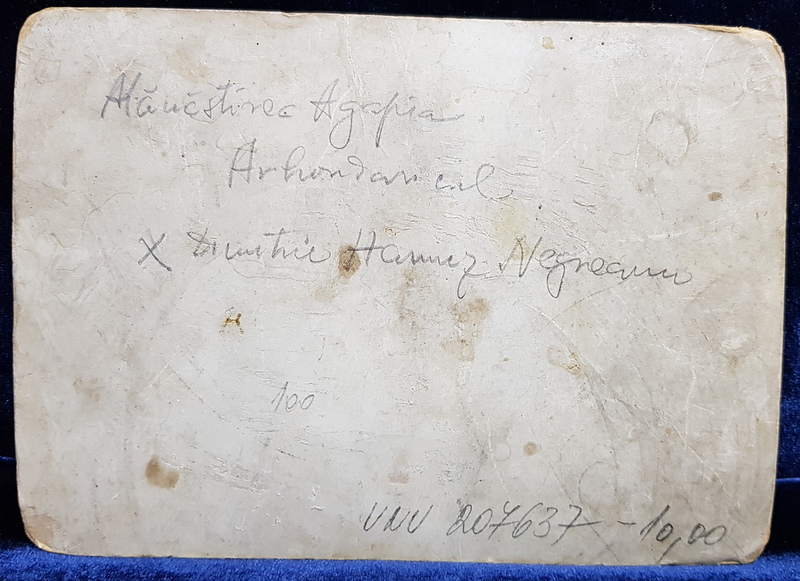 Mănăstirea Agapia
Arhondaricul
X Dimitrie Hamuz Negreanu
100
VNV 207637 - 10,00